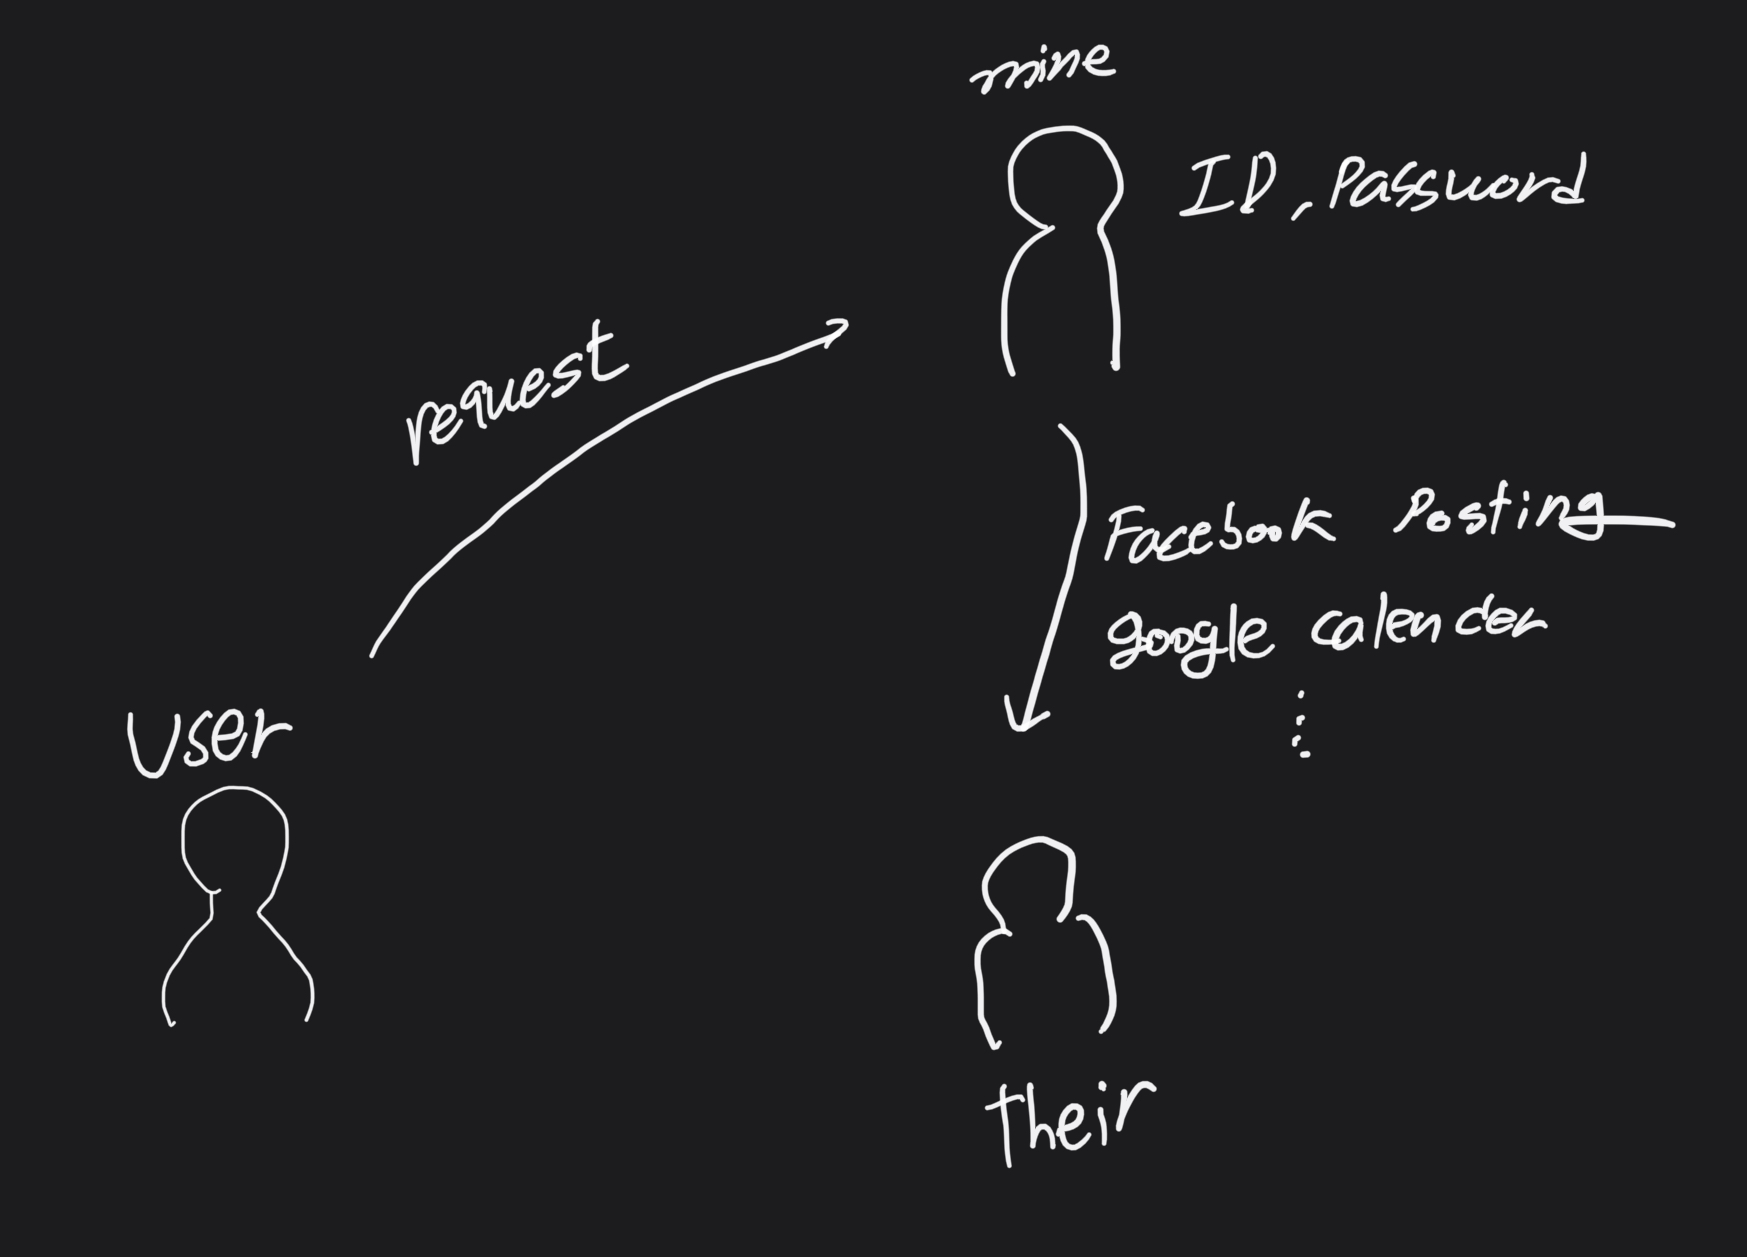 mine
ID, Password
request
Facebook Posting
google calender
User
Their